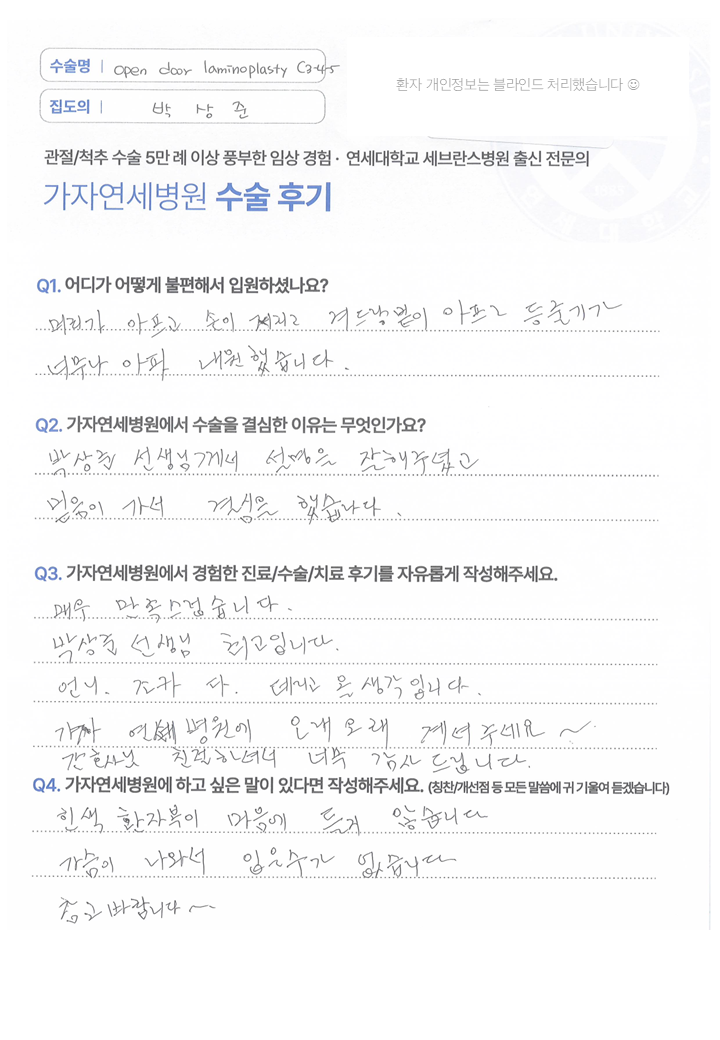 수술명 | open door laminoplasty C3-4-5
환자 개인정보는 블라인드 처리했습니다 ☺
집도의 | 박 상 준
관절/척추 수술 5만 례 이상 풍부한 임상 경험 · 연세대학교 세브란스병원 출신 전문의
가자연세병원 수술 후기
Q1. 어디가 어떻게 불편해서 입원하셨나요?
머리가 아프고 손이 저리고 겨드랑밑이 아프고 등줄기가
너무나 아파 내원했습니다.
Q2. 가자연세병원에서 수술을 결심한 이유는 무엇인가요?
박상준 선생님께서 설명을 잘해주셨고
믿음이 가서 결심을 했습니다.
Q3. 가자연세병원에서 경험한 진료/수술/치료 후기를 자유롭게 작성해주세요.
매우 만족스럽습니다.
박상준 선생님 최고입니다.
언니. 조카 다. 데리고 올 생각입니다.
가자 연세병원에 오래오래 계셔주세요~
간호사님 친절하셔서 너무 감사드립니다.
Q4. 가자연세병원에 하고 싶은 말이 있다면 작성해주세요. (칭찬/개선점 등 모든 말씀에 귀 기울여 듣겠습니다)
흰색 환자복이 마음에 들지 않습니다
가슴이 나와서 입을수가 없습니다
참고바랍니다~